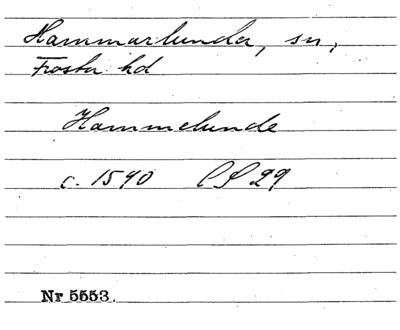 Hammarlunda, sn,
Frosta hd
Hammelunde
c. 1590 LP 29
Nr 5553.